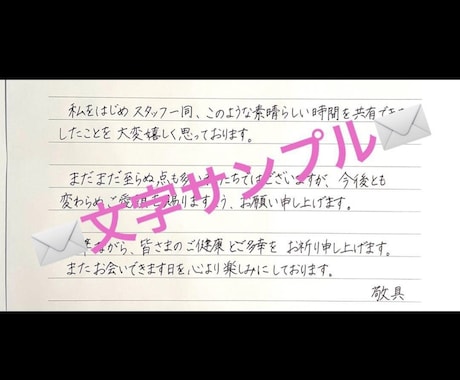 私をはじめスタッフ一同、このような素晴らしい時間を共有
したことを大変嬉しく思っております。
まだまだ至らぬ点も多い たちではございますが、今後とも
変わらぬご愛 賜りますよう、お願い申し上げます。
ながら、皆さまのご健康とご多幸をお祈り申し上げます。
またお会いできます日を心より楽しみにしております。
敬具
文字サンプル